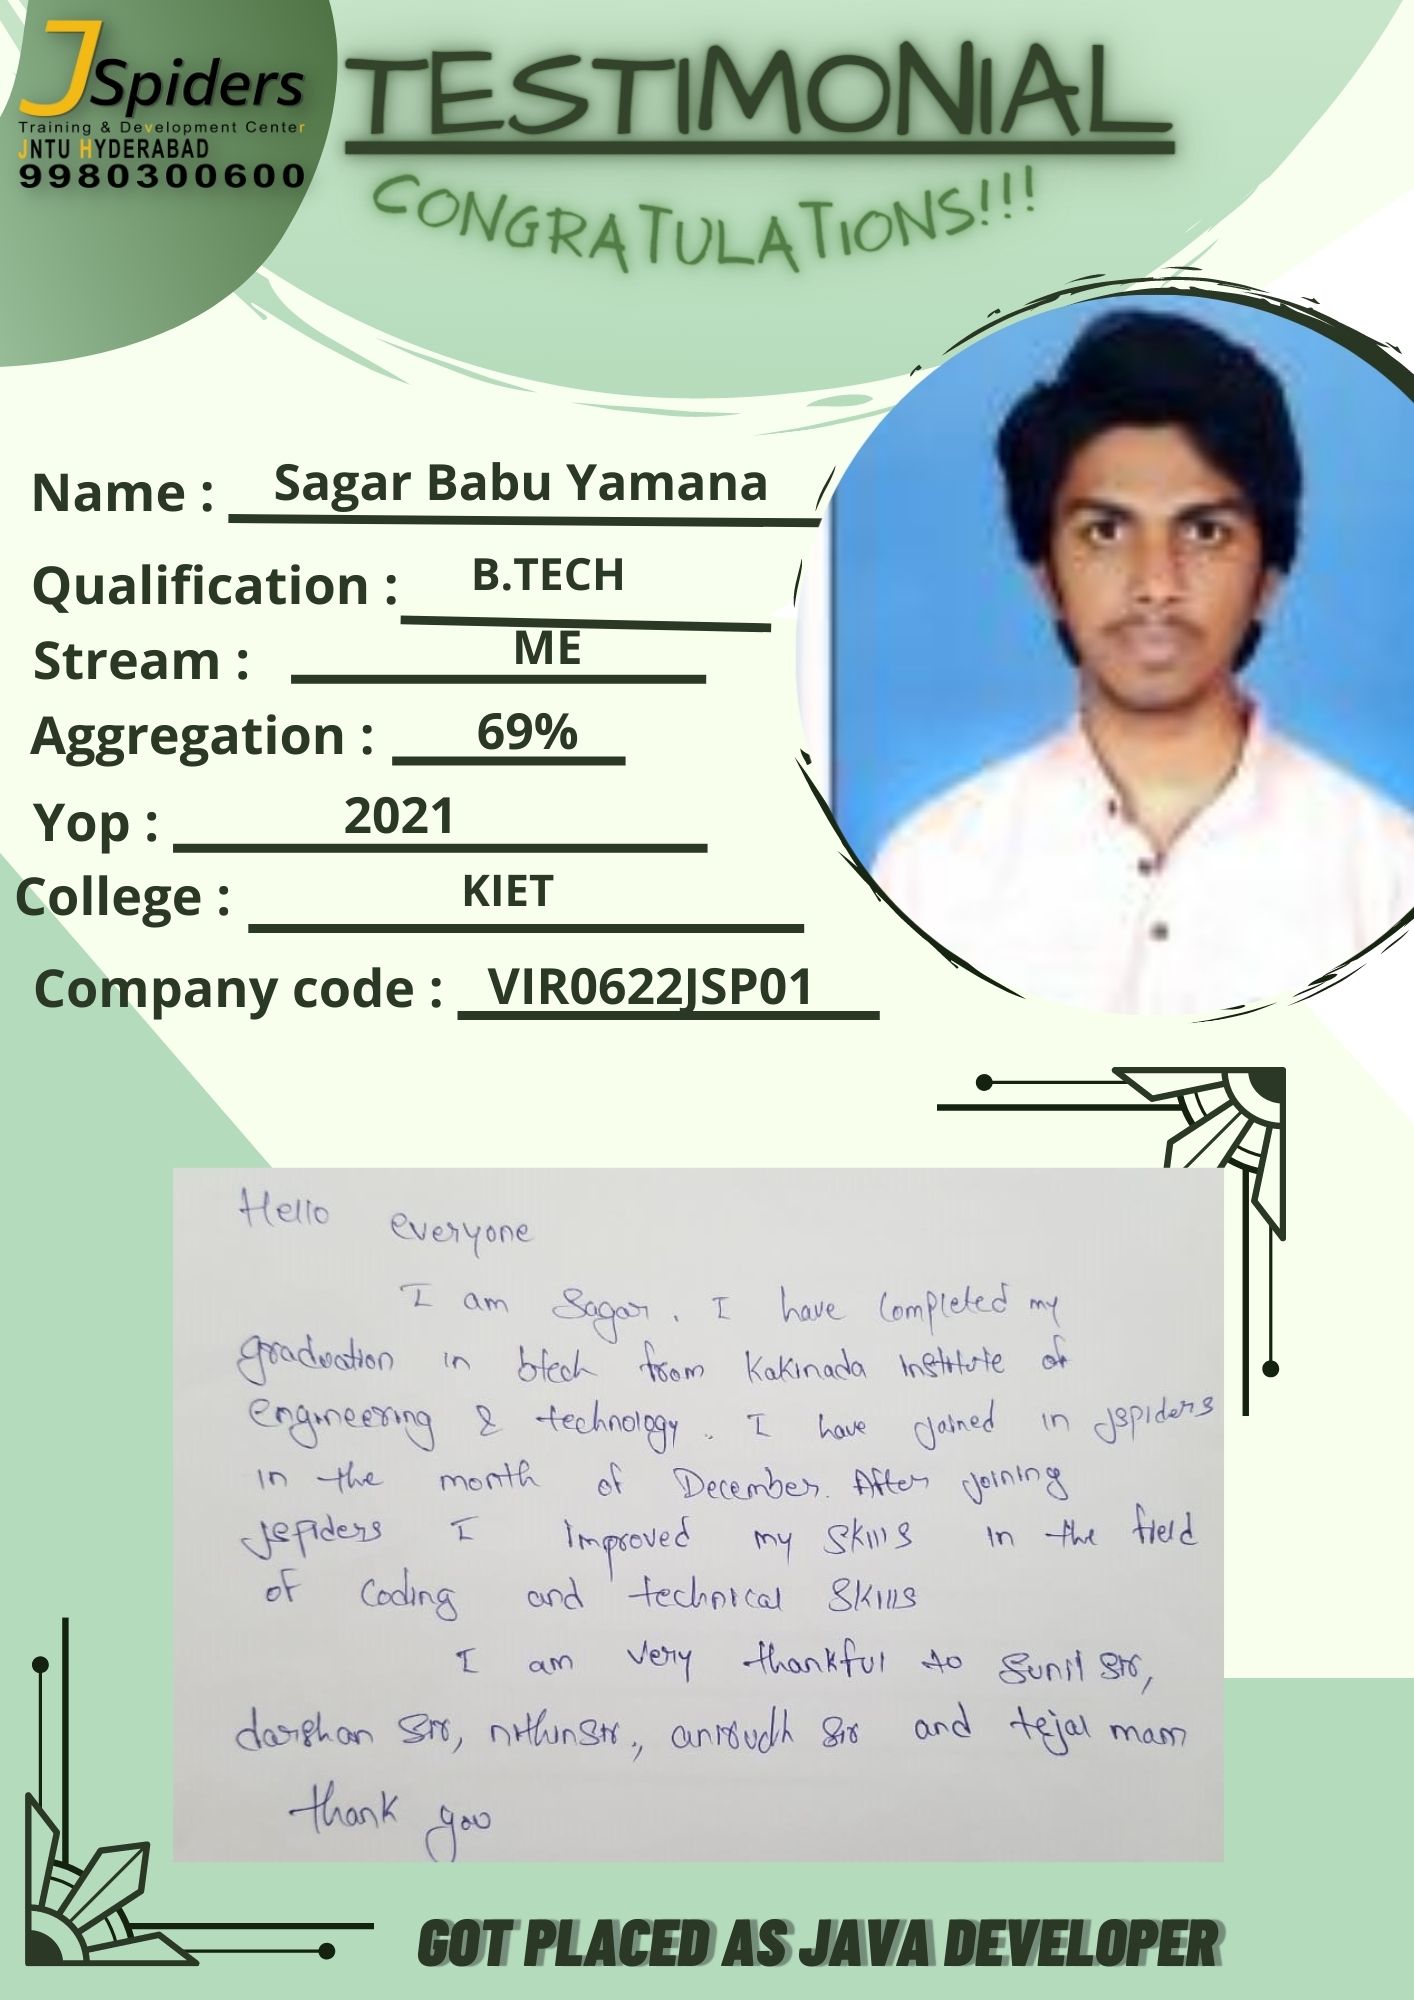 JSpiders
Training & Development Center
JNTU HYDERABAD
9980300600
TESTIMONIAL
CONGRATULATIONS!!!
Name : Sagar Babu Yamana
Qualification : B.TECH
Stream : ME
Aggregation : 69%
Yop : 2021
College : KIET
Company code : VIR0622JSP01
Hello everyone
I am Sagar. I have completed my
graduation in btech from Kakinada institute of
engineering & technology. I have joined in jspiders
in the month of December. After joining
jspiders I improved my skills in the field
of coding and technical skills
I am very thankful to Sunil sir,
darshan sir, nithin sir, anirudh sir and tejal mam
thank you
GOT PLACED AS JAVA DEVELOPER